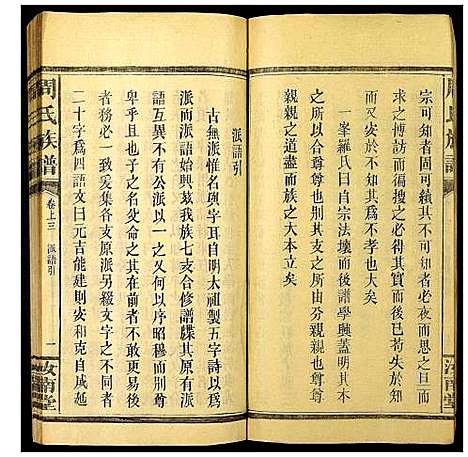 周氏族譜
宗可知者固可續其不可知者必夜而思之旦而
求之博訪而得搜之必得其實而後已苟失於此
而又安於不知其為不孝者大矣
一峯羅氏曰自宗法壞而後譜學興蓋明其本
之所自出尊尊之義也支之所由分親親也尊尊
親親之道盡而族之大本立矣
派語引
古無派惟名與字耳自明太祖製五字詩以為
派而派語始興故我族七支合修譜牒其原有派
語互異不有公派以一之又何以序昭穆而別尊
卑乎且也三代之名受命之其在前者不敢更易後
者務必一體而彙集各支原派另綴文字之不同者
二十字為四語文曰元吉能建則安和克自成延
周氏族譜
卷上三
派語引
一
汝南堂
汝南堂